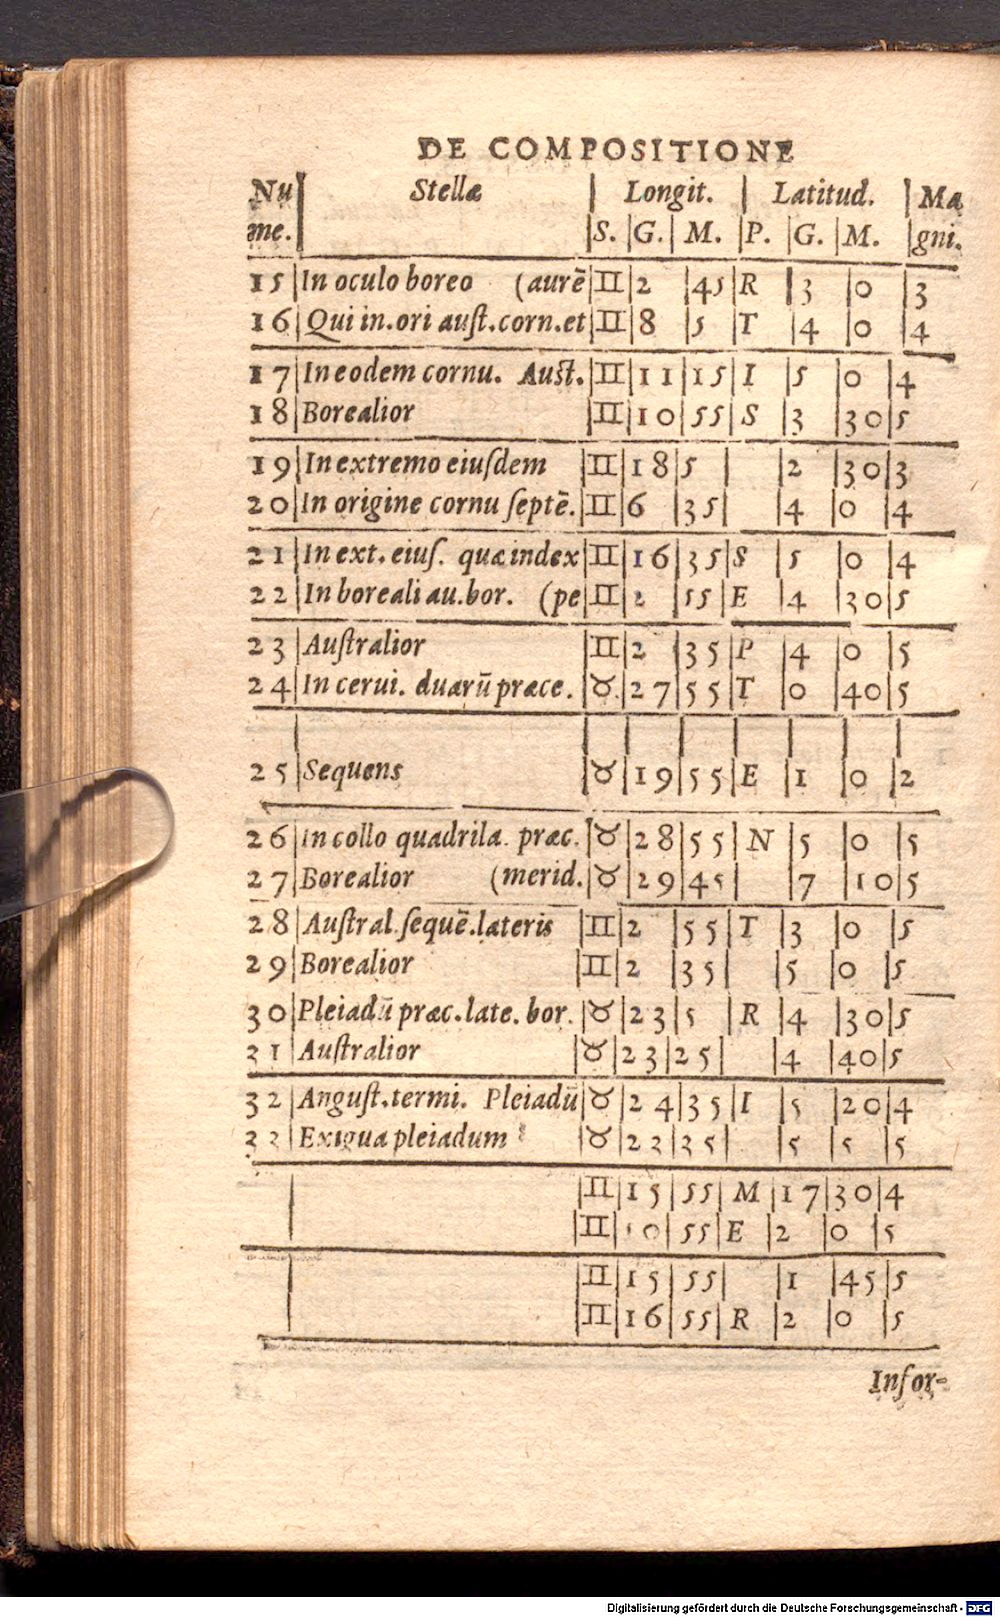 DE COMPOSITIONE
Nu| Stellæ | Longit. | Latitud. | Ma
me.| |S. |G.| M. |P. |G. |M. |gni.
15|In oculo boreo (aurē|♊|2 |45|R |3 |0 |3
16|Qui in.ori auſt.corn.et|♊|8 |5 |T |4 |0 |4
17|In eodem cornu. Auſt.|♊|11|15|I |5 |0 |4
18|Borealior |♊|10|55|S |3 |30|5
19|In extremo eiuſdem |♊|18|5 | |2 |30|3
20|In origine cornu ſeptē.|♊|6 |35| |4 |0 |4
21|In ext. eiuſ. quæ index|♊|16|35|S |5 |0 |4
22|In boreali au.bor. (pe|♊|2 |55|E |4 |30|5
23|Auſtralior |♊|2 |35|P |4 |0 |5
24|In cerui. duarū præce.|♉.|27|55|T |0 |40|5
25|Sequens |♉|19|55|E |1 |0 |2
26|In collo quadrila. præc.|♉|28|55|N |5 |0 |5
27|Borealior (merid.|♉|29|45| |7 |10|5
28|Auſtral.ſequē.lateris |♊|2 |55|T |3 |0 |5
29|Borealior |♊|2 |35| |5 |0 |5
30|Pleiadū præc.late. bor.|♉|23|5 |R |4 |30|5
31|Auſtralior |♉|23|25| |4 |40|5
32|Anguſt.termi. Pleiadū|♉|24|35|I |5 |20|4
33|Exigua pleiadum |♉|23|35| |5 |5 |5
| |♊|15|55|M |17|30|4
|♊|10|55|E |2 |0 |5
| |♊|15|55| |1 |45|5
|♊|16|55|R |2 |0 |5
Infor-
Digitalisierung gefördert durch die Deutsche Forschungsgemeinschaft - DFG